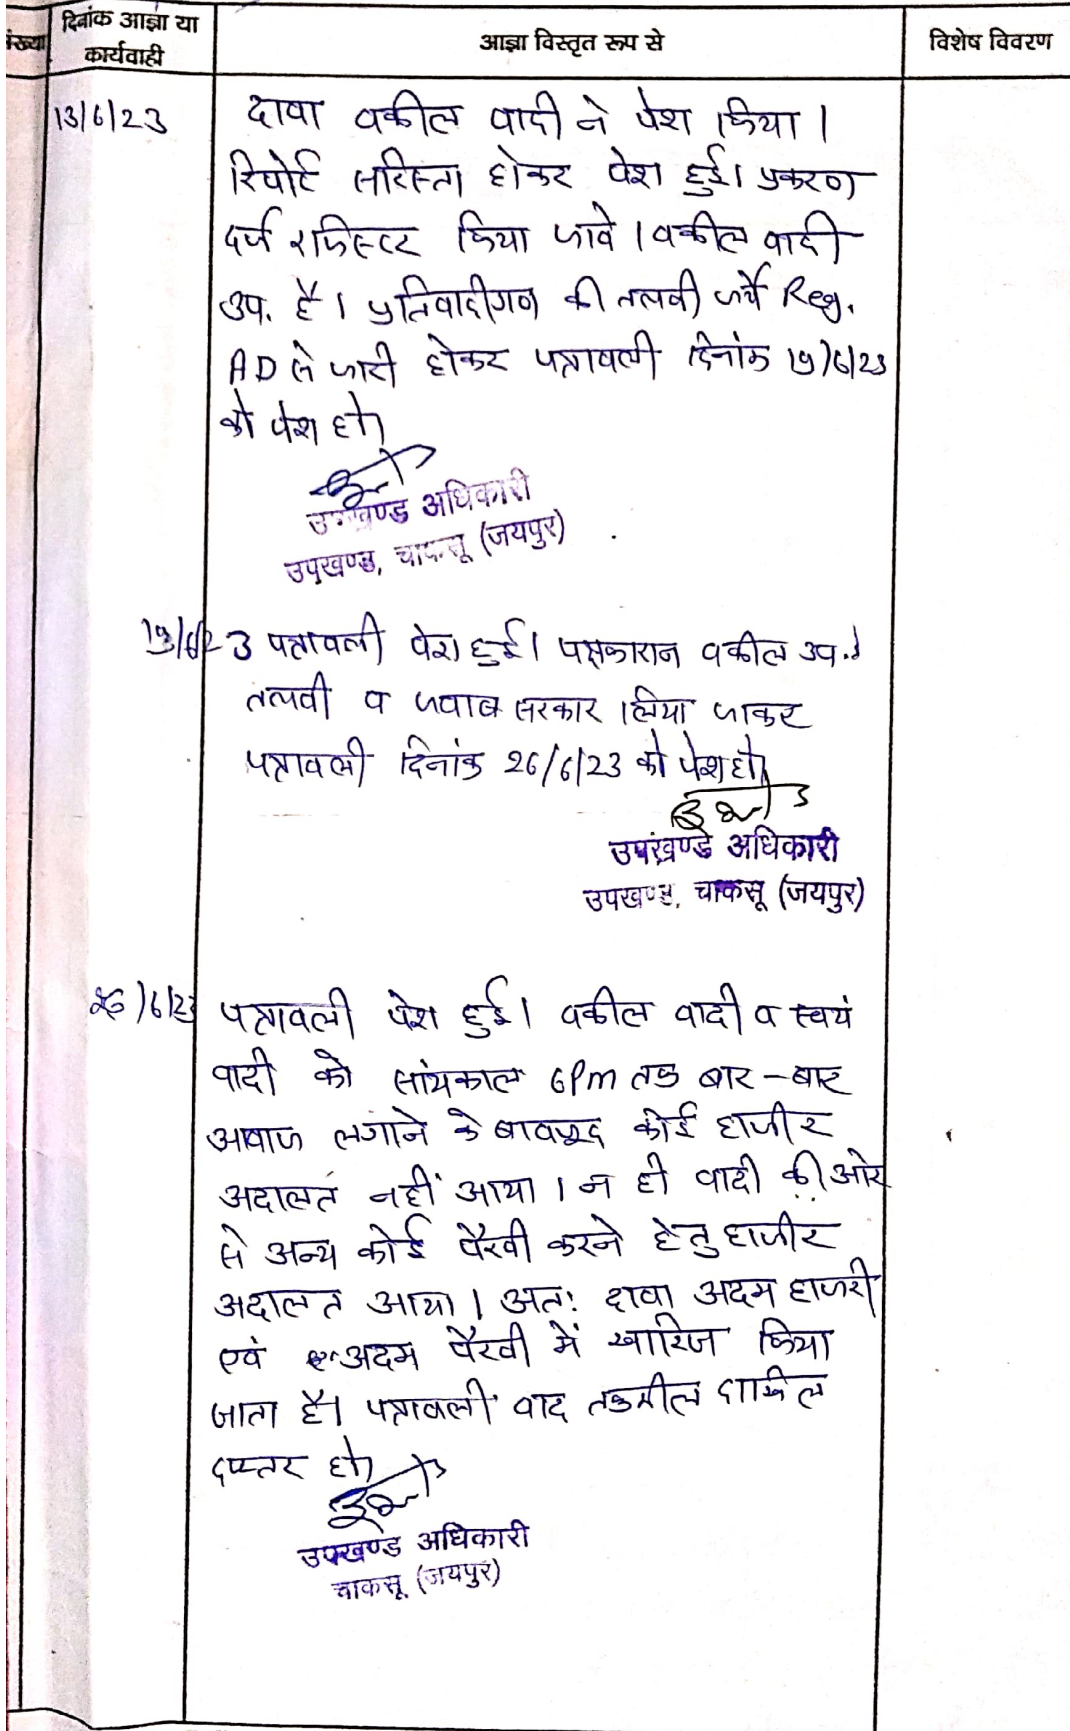 दिनांक आज्ञा या
कार्यवाही
संख्या
आज्ञा विस्तृत रूप से
विशेष विवरण
13/6/23
दावा वकील वादी ने पेश किया ।
रिपोर्ट सरिस्ता होकर पेश हुई। प्रकरण
दर्ज रजिस्टर किया जावे । वकील वादी
उप. है । प्रतिवादीगण की तलवी जर्ये Reg.
AD से जारी होकर पत्रावली दिनांक 19/6/23
को पेश हो।
उपखण्ड अधिकारी
उपखण्ड, चाकसू (जयपुर)
19/6/23 पत्रावली पेश हुई। पक्षकारान वकील उप.।
तलवी व जवाब सरकार लिया जाकर
पत्रावली दिनांक 26/6/23 को पेश हो।
उपखण्ड अधिकारी
उपखण्ड, चाकसू (जयपुर)
26/6/23 पत्रावली पेश हुई। वकील वादी व स्वयं
वादी को सांयकाल 6Pm तक बार-बार
आवाज लगाने के बावजूद कोई हाजीर
अदालत नहीं आया । न ही वादी की ओर
से अन्य कोई पैरवी करने हेतु हाजीर
अदालत आया । अतः दावा अदम हाजरी
एवं अदम पैरवी में खारिज किया
जाता है। पत्रावली वाद तकमील दाखिल
दफ्तर हो।
उपखण्ड अधिकारी
चाकसू (जयपुर)